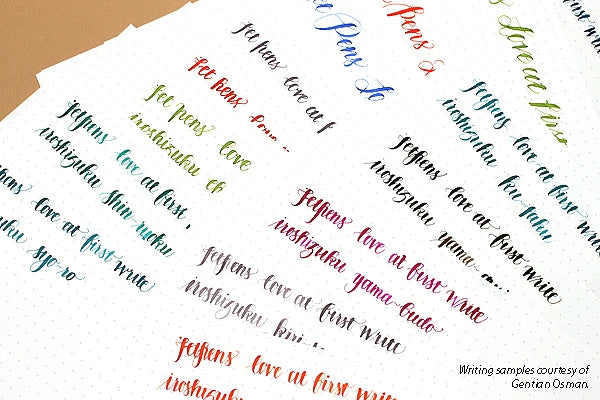 Pens
Pens &
Love at first
Jet pens love at f
Jet pens
Jet pens love
iroshizuku ch
Jetpens love at first
iroshizuku shin-ryoku
pens love at first write
syo-ro
Jetpens love at first write
iroshizuku ku-jaku
Jetpens love at first write
iroshizuku yama-
Jetpens love at first write
iroshizuku yama-budo
Jetpens love at first write
iroshizuku kiri
Jetpens love at first write
iroshizuku
Writing samples courtesy of
Gentian Osman.